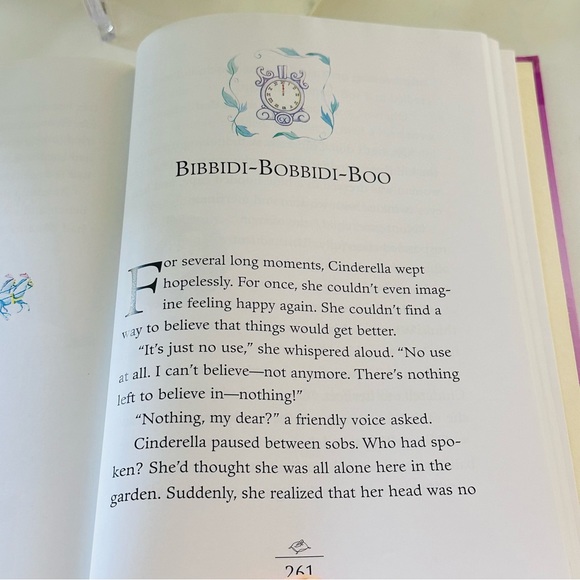 BIBBIDI-BOBBIDI-BOO
For several long moments, Cinderella wept
hopelessly. For once, she couldn't even imag-
ine feeling happy again. She couldn't find a
way to believe that things would get better.
"It's just no use," she whispered aloud. "No use
at all. I can't believe—not anymore. There's nothing
left to believe in—nothing!"
"Nothing, my dear?" a friendly voice asked.
Cinderella paused between sobs. Who had spo-
ken? She'd thought she was all alone here in the
garden. Suddenly, she realized that her head was no
261